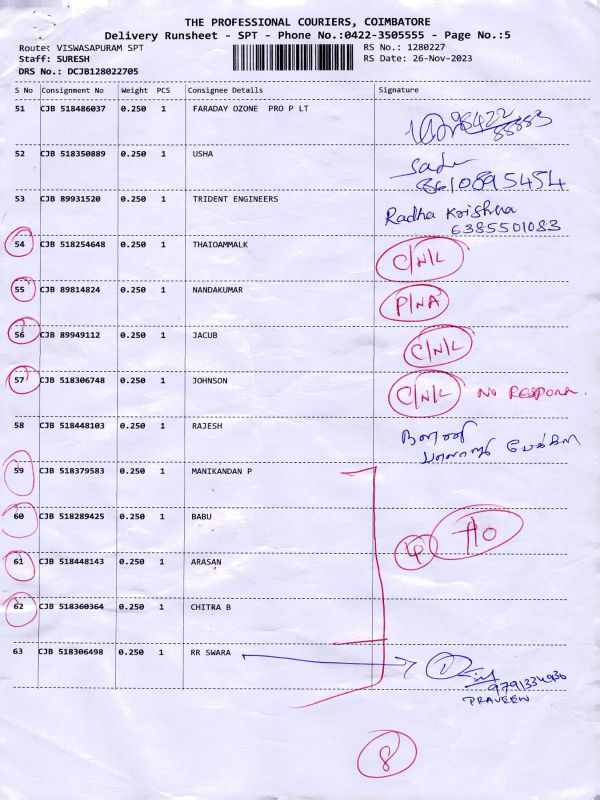 THE PROFESSIONAL COURIERS, COIMBATORE
Delivery Runsheet - SPT - Phone No.:0422-3505555 - Page No.:5
Route: VISWASAPURAM SPT RS No.: 1280227
Staff: SURESH RS Date: 26-Nov-2023
DRS No.: DCJB128022705
S No Consignment No Weight PCS Consignee Details Signature
51 CJB 518486037 0.250 1 FARADAY OZONE PRO P LT 98422
88883
52 CJB 518350889 0.250 1 USHA
8610895454
53 CJB 89931520 0.250 1 TRIDENT ENGINEERS Radha Krishna
6385501083
54 CJB 518254648 0.250 1 THAIOAMMALK C/N/L
55 CJB 89814824 0.250 1 NANDAKUMAR P/NA
56 CJB 89949112 0.250 1 JACUB C/N/L
57 CJB 518306748 0.250 1 JOHNSON C/N/L NO RESPONR.
58 CJB 518448103 0.250 1 RAJESH
59 CJB 518379583 0.250 1 MANIKANDAN P
60 CJB 518289425 0.250 1 BABU
61 CJB 518448143 0.250 1 ARASAN
62 CJB 518360364 0.250 1 CHITRA B
63 CJB 518306498 0.250 1 RR SWARA
9791334936
PRAVEEN
8